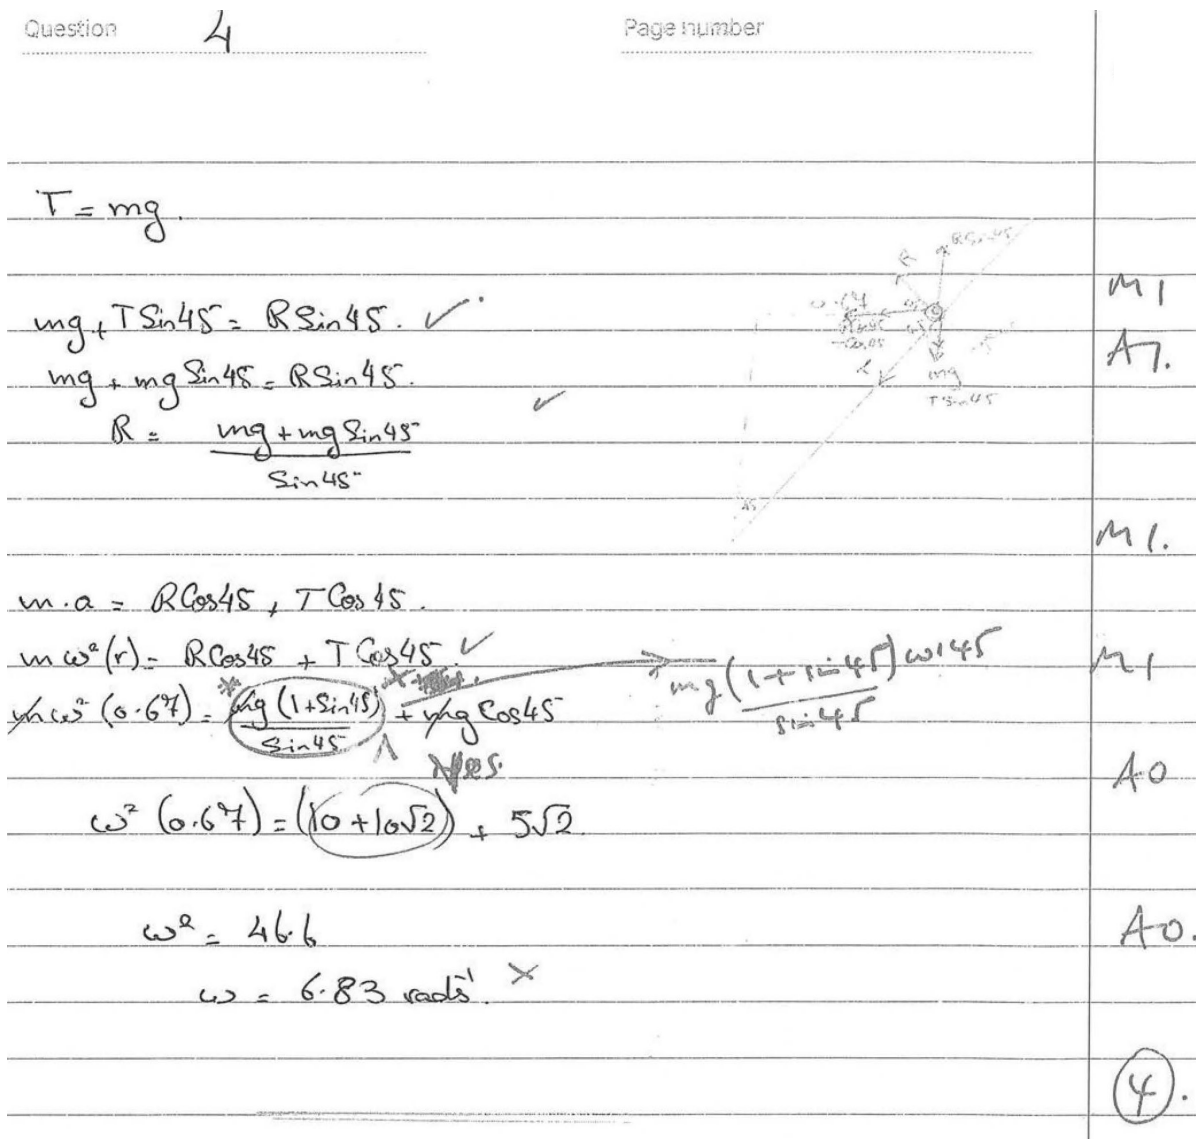 Question 4 Page number
T = mg.
mg + T Sin45 = R Sin45. ✓ M1
mg + mg Sin45 = R Sin45. A1.
R = (mg + mg Sin45) / Sin45 ✓
R RSin45
mg
TSin45
45
M1.
m.a = R Cos45 + T Cos45.
mω²(r) = R Cos45 + T Cos45 ✓ M1
mω²(0.67) = mg(1+Sin45) / Sin45 + mg Cos45 mg(1+sin45) cos45 / sin45
A0
ω²(0.67) = (10+10√2) + 5√2.
ω² = 46.6 A0.
ω = 6.83 rads⁻¹. ×
4.